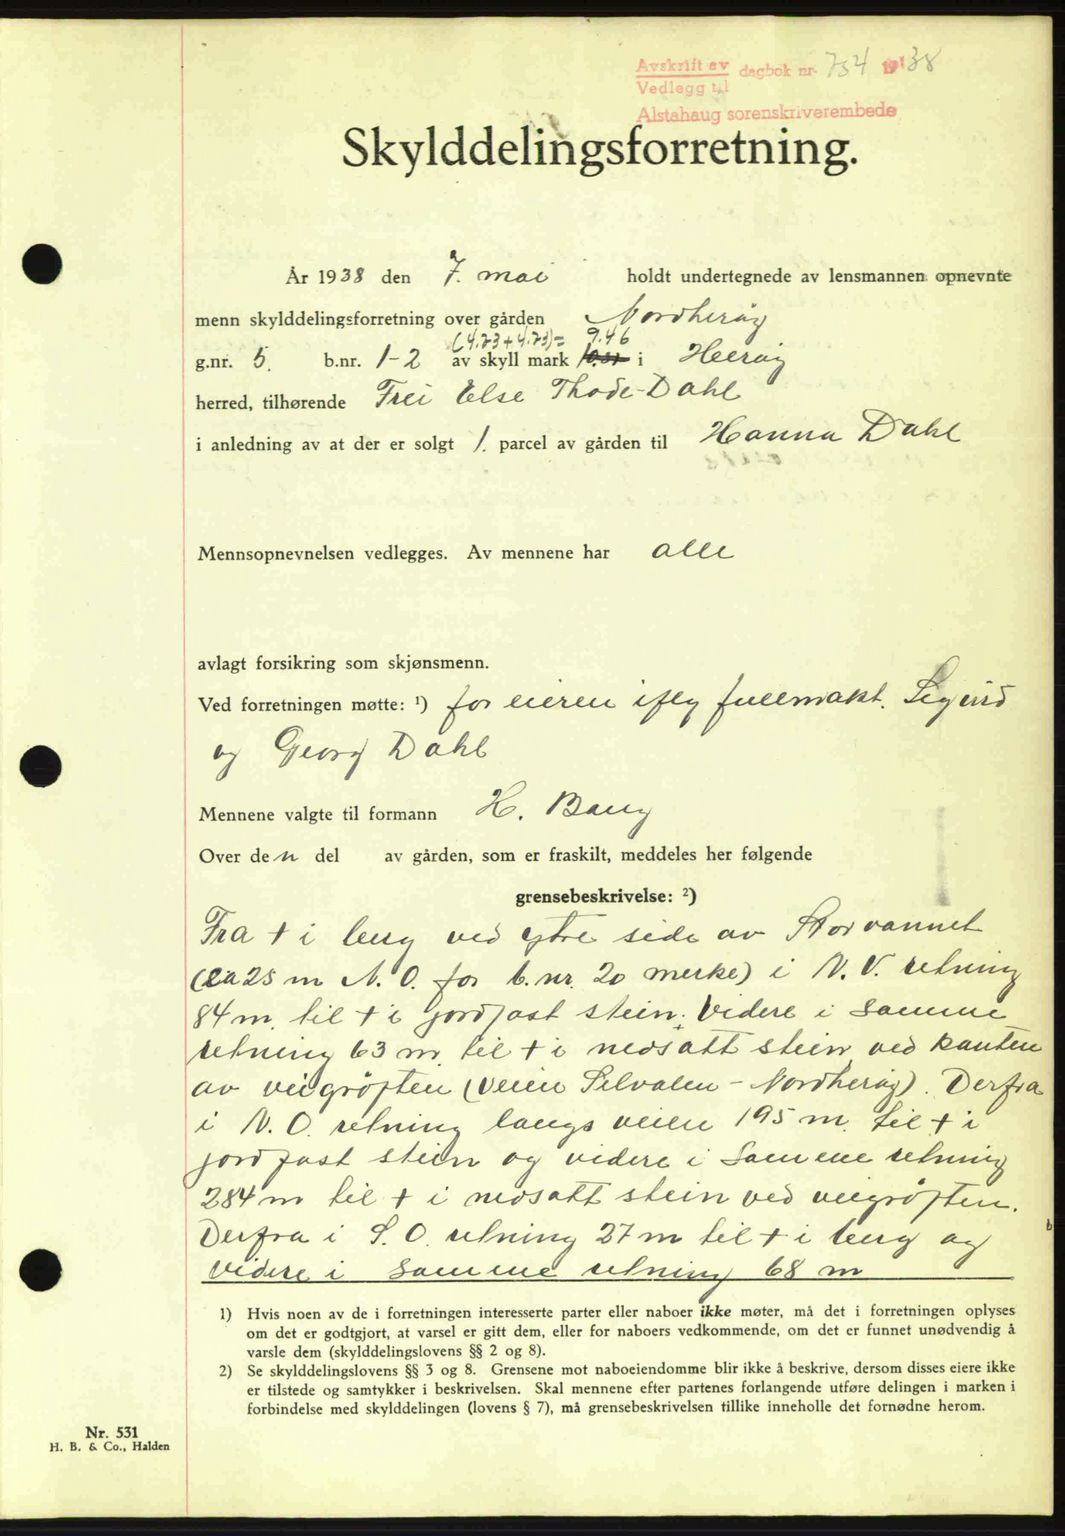 Avskrift av dagbok nr. 754 1938
Vedlegg til
Alstahaug sorenskriverembede
Skylddelingsforretning.
År 1938 den 7. mai holdt undertegnede av lensmannen opnevnte
menn skylddelingsforretning over gården Nordherøy
(4.73+4.73)= 9.46
g.nr. 5. b.nr. 1-2 av skyll mark i Herøy
herred, tilhørende Frei Else Thode-Dahl
i anledning av at der er solgt 1. parcel av gården til Hanna Dahl
Mennsopnevnelsen vedlegges. Av mennene har alle
avlagt forsikring som skjønsmenn.
Ved forretningen møtte: ¹) for eieren iflg fullmakt. Sigurd
og Georg Dahl
Mennene valgte til formann H. Bang
Over den del av gården, som er fraskilt, meddeles her følgende
grensebeskrivelse: ²)
Fra + i berg ved ytre side av Storvannet
(ca 25 m N.O. for b.nr. 20 merke) i N.V. retning
84 m. til + i jordfast stein. Videre i samme
retning 63 m til + i nedsatt stein ved kanten
av veigrøften (veien Silvalen - Nordherøy). Derfra
i N.O. retning langs veien 195 m. til + i
jordfast stein og videre i samme retning
284 m til + i nedsatt stein ved veigrøften.
Derfra i S.O. retning 27 m til + i berg og
videre i samme retning 68 m
1) Hvis noen av de i forretningen interesserte parter eller naboer ikke møter, må det i forretningen oplyses
om det er godtgjort, at varsel er gitt dem, eller for naboers vedkommende, om det er funnet unødvendig å
varsle dem (skylddelingslovens §§ 2 og 8).
2) Se skylddelingslovens §§ 3 og 8. Grensene mot naboeiendomme blir ikke å beskrive, dersom disses eiere ikke
er tilstede og samtykker i beskrivelsen. Skal mennene efter partenes forlangende utføre delingen i marken i
forbindelse med skylddelingen (lovens § 7), må grensebeskrivelsen tillike inneholle det fornødne herom.
Nr. 531
H. B. & Co., Halden